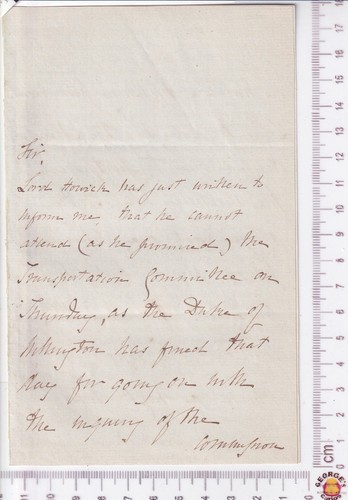 Sir,
Lord Howick has just written to
inform me, that he cannot
attend (as he promised) the
Transportation Committee on
Thursday, as the Duke of
Wellington has fixed that
day for going on with
the inquiry of the
Commission
18
17
16
15
14
13
12
11
10
9
8
7
6
5
4
3
2
1
0
cm
11
10
9
8
7
6
5
4
3
2
1
0
cm
GEORGE'S